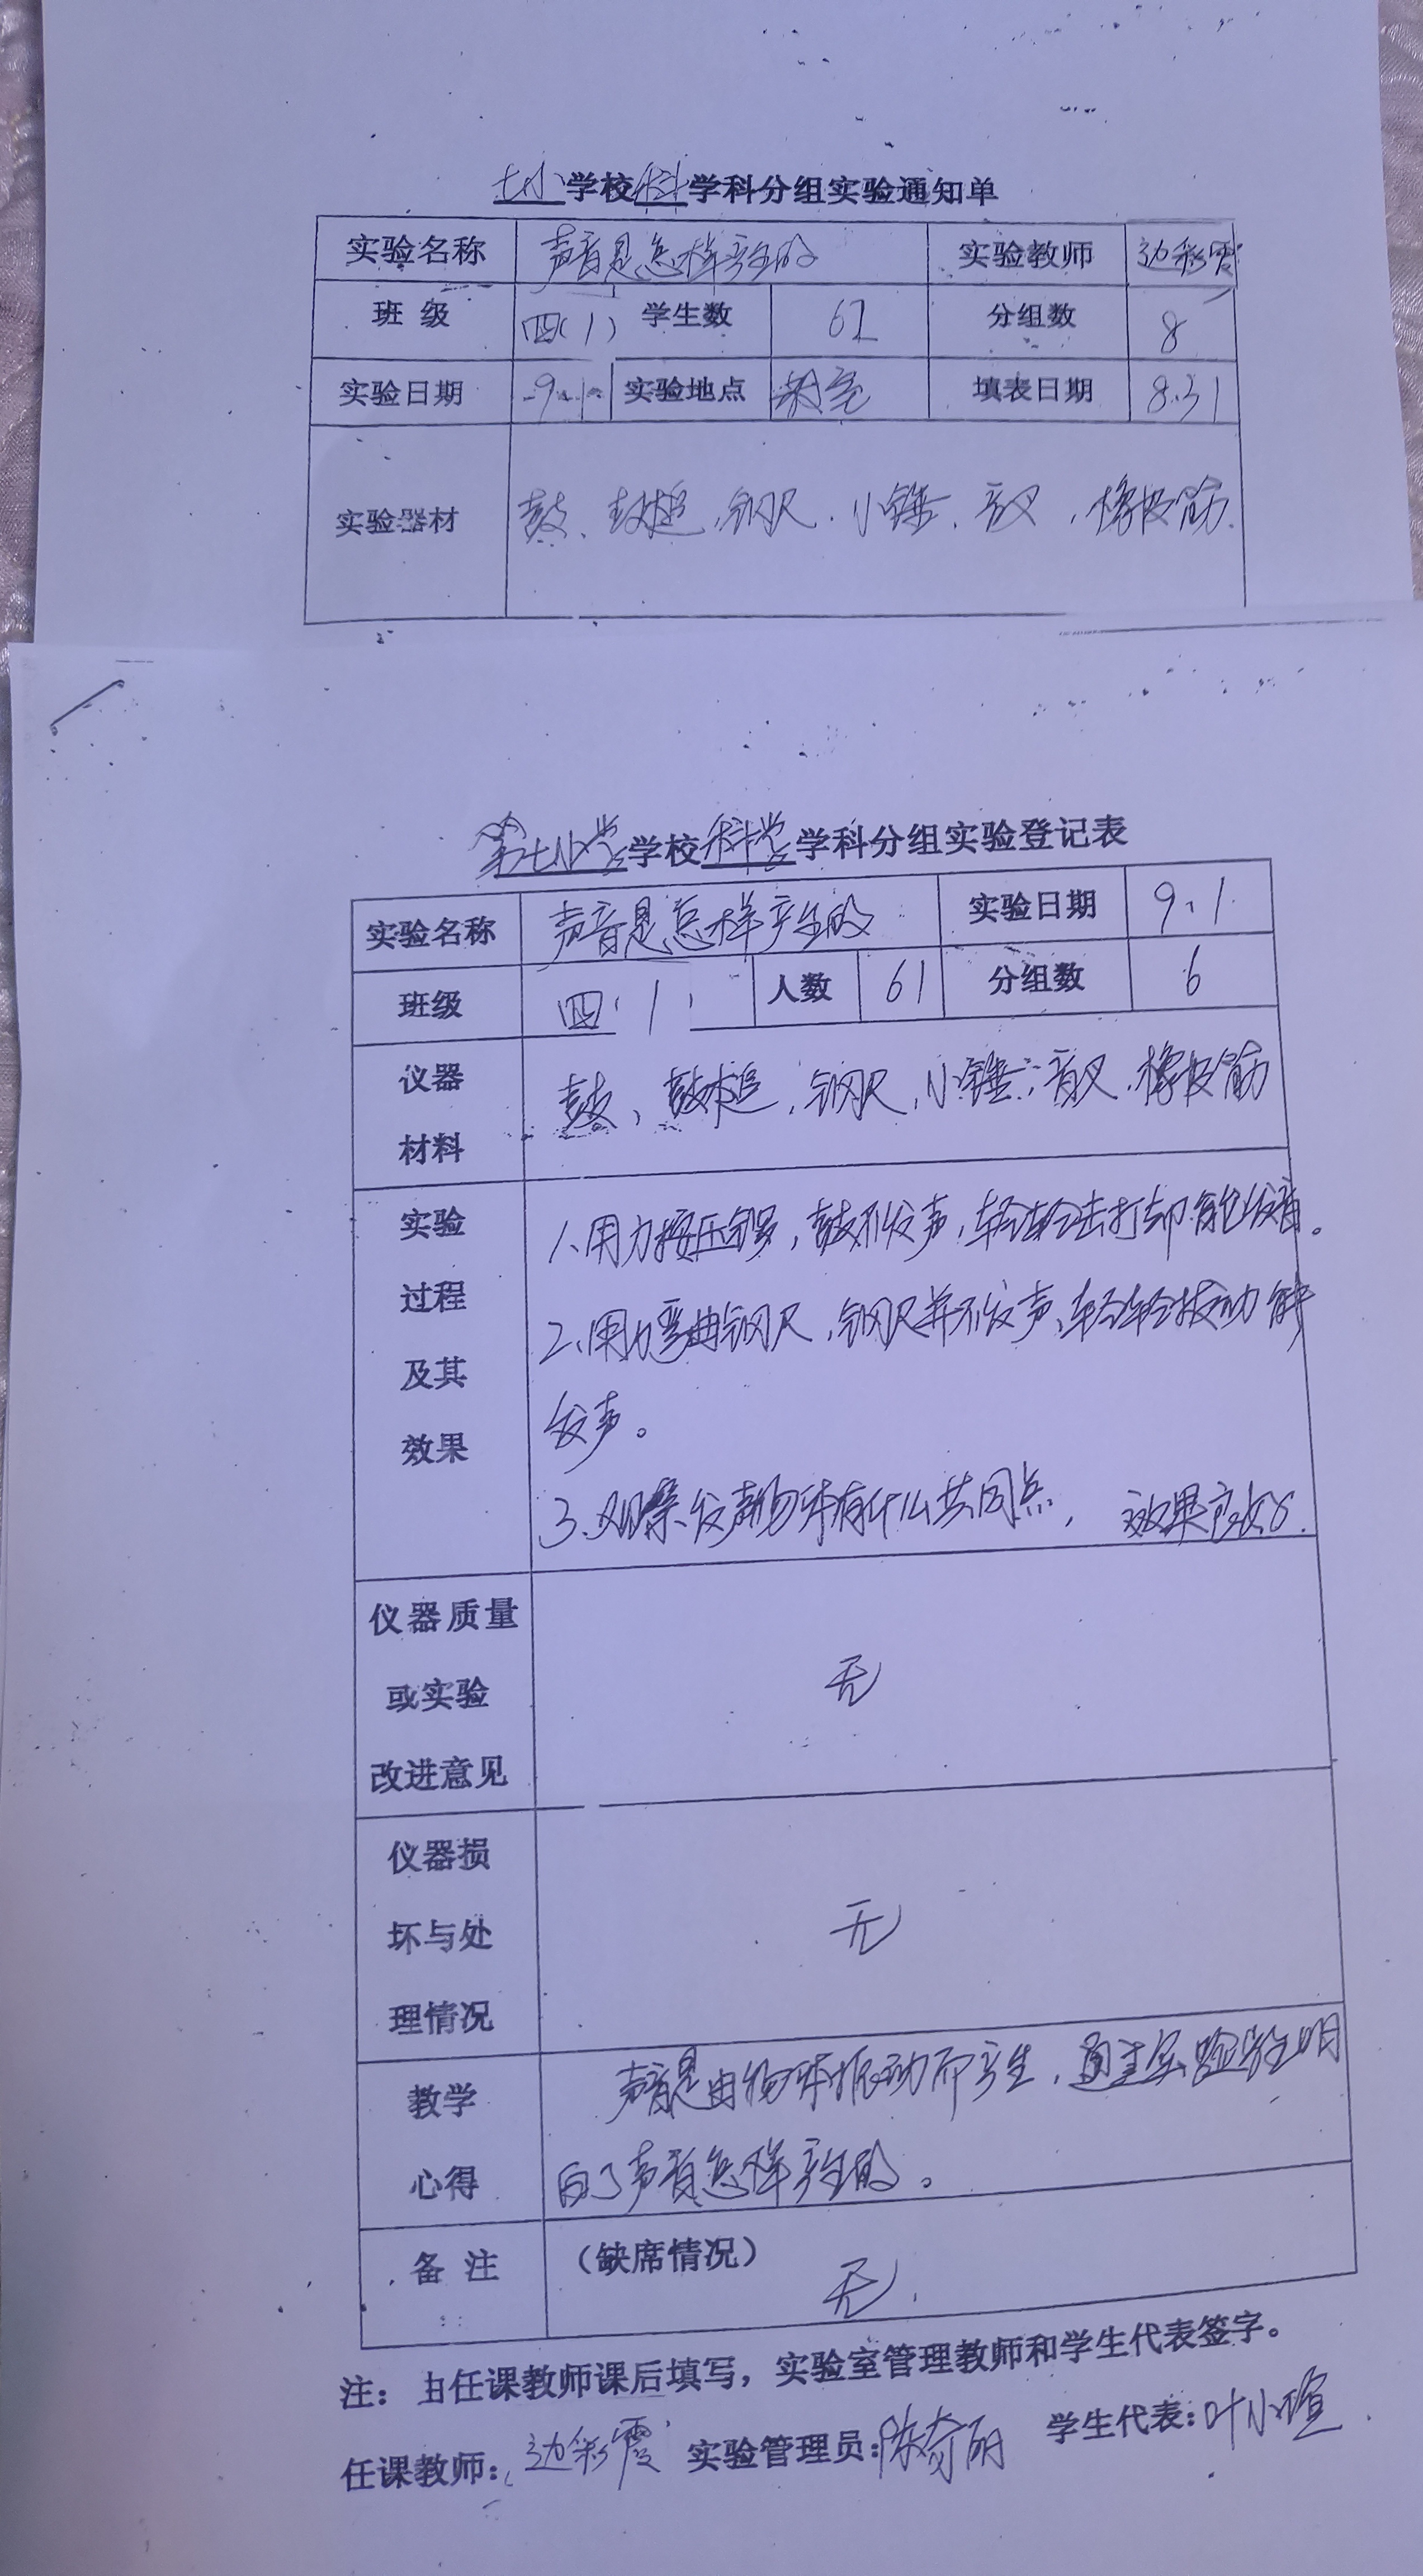 七小学校科学科分组实验通知单
实验名称 声音是怎样产生的 实验教师 边彩霞
班 级 四(1) 学生数 61 分组数 8
实验日期 9.1 实验地点 室 填表日期 8.31
实验器材 鼓、鼓槌、钢尺、小锤、音叉、橡皮筋.
第七小学学校科学学科分组实验登记表
实验名称 声音是怎样产生的 实验日期 9.1.
班级 四(1) 人数 61 分组数 6
仪器
材料
鼓、鼓槌,钢尺,小锤、音叉,橡皮筋
实验
过程
及其
效果
1、用力按压锣,鼓不发声,轻轻击打却能发音。
2、用力弯曲钢尺,钢尺并不发声、轻轻拨动能
发声。
3、观察发声物体有什么共同点, 效果良好.
仪器质量
或实验
改进意见
无
仪器损
坏与处
理情况
无
教学
心得
声音是由物体振动而产生,通过实验学生明
白了声音怎样产生的。
备 注 (缺席情况)
无.
注:由任课教师课后填写,实验室管理教师和学生代表签字。
任课教师: 边彩霞 实验管理员:陈奇丽 学生代表:叶小瑄